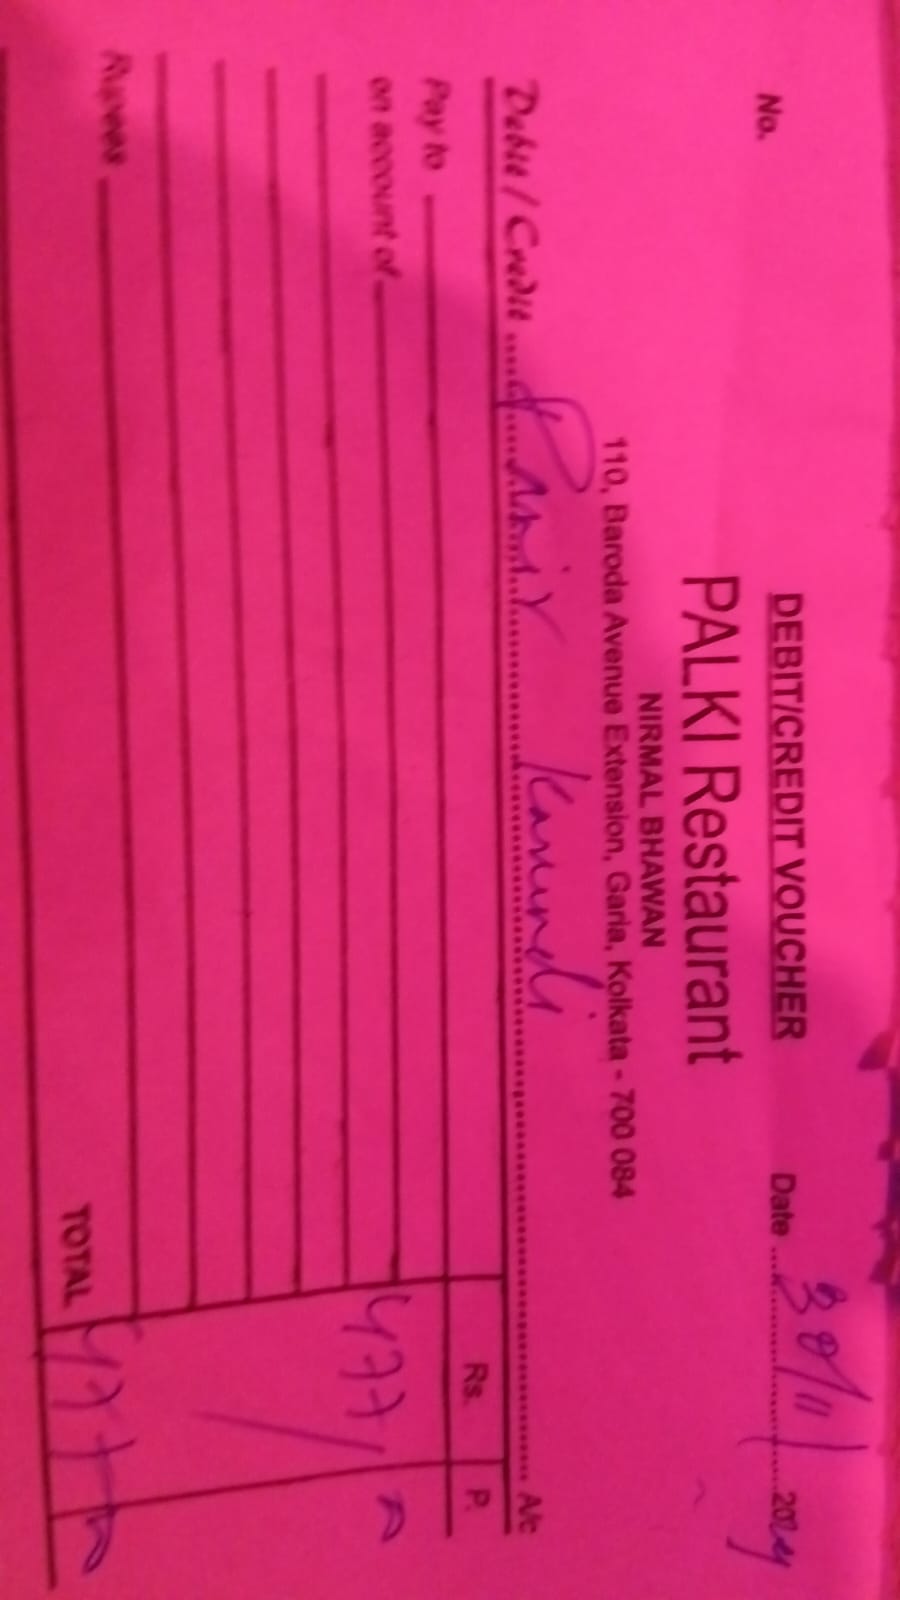 DEBIT/CREDIT VOUCHER
No.
Date 30/11/ 2024
PALKI Restaurant
NIRMAL BHAWAN
110, Baroda Avenue Extension, Garia, Kolkata - 700 084
Debit / Credit A/c
Pay to Rs. P.
on account of 477/
Rupees
TOTAL 477